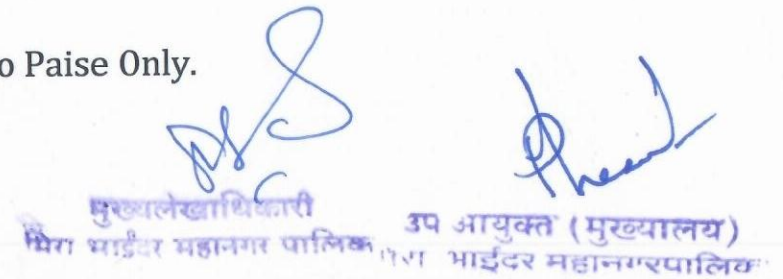 o Paise Only.
मुख्यलेखाधिकारी
मिरा भाईंदर महानगर पालिका
उप आयुक्त (मुख्यालय)
भाईंदर महानगरपालिका